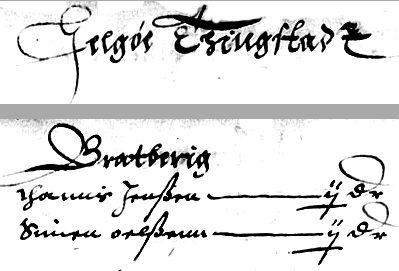 Helgøe Thingstadt
Bratberig
Hannis Jenßen ij dr
Simen oelßenn ij dr